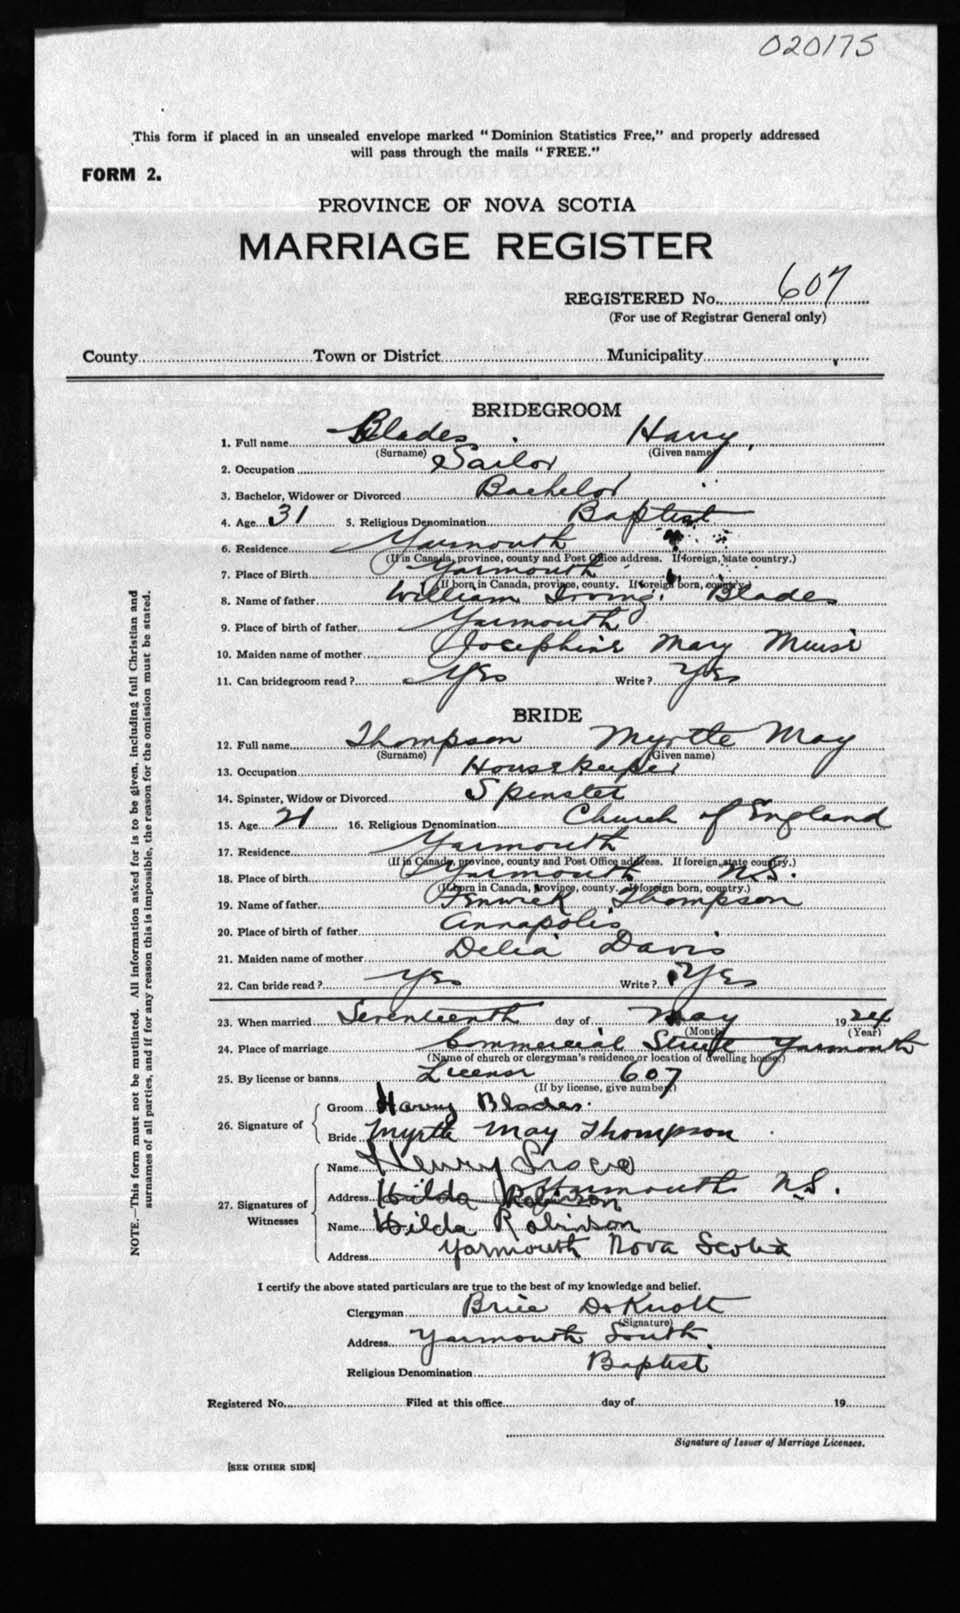 020175
This form if placed in an unsealed envelope marked "Dominion Statistics Free," and properly addressed
will pass through the mails "FREE."
FORM 2.
PROVINCE OF NOVA SCOTIA
MARRIAGE REGISTER
REGISTERED No. 607
(For use of Registrar General only)
County Town or District Municipality
BRIDEGROOM
1. Full name Blades Harry
(Surname) (Given name)
2. Occupation Sailor
3. Bachelor, Widower or Divorced Bachelor
4. Age 31 5. Religious Denomination Baptist
6. Residence Yarmouth
(If in Canada, province, county and Post Office address. If foreign, state country.)
7. Place of Birth Yarmouth
(If born in Canada, province, county. If foreign born, country.)
8. Name of father William Irving Blades
9. Place of birth of father Yarmouth
10. Maiden name of mother Josephine May Muise
11. Can bridegroom read? Yes Write? Yes
BRIDE
12. Full name Thompson Myrtle May
(Surname) (Given name)
13. Occupation Housekeeper
14. Spinster, Widow or Divorced Spinster
15. Age 21 16. Religious Denomination Church of England
17. Residence Yarmouth
(If in Canada, province, county and Post Office address. If foreign, state country.)
18. Place of birth Yarmouth N.S.
(If born in Canada, province, county. If foreign born, country.)
19. Name of father Fenwick Thompson
20. Place of birth of father Annapolis
21. Maiden name of mother Delia Davis
22. Can bride read? Yes Write? Yes
23. When married Seventeenth day of May 1924
(Month) (Year)
24. Place of marriage Commercial Street Yarmouth
(Name of church or clergyman's residence or location of dwelling house.)
25. By license or banns License 607
(If by license, give number)
26. Signature of Groom Harry Blades.
Bride Myrtle May Thompson
27. Signatures of Witnesses
Name Henry
Address Hilda Robinson Yarmouth N.S.
Name Hilda Robinson
Address Yarmouth Nova Scotia
I certify the above stated particulars are true to the best of my knowledge and belief.
Clergyman Brice D. Knott
(Signature)
Address Yarmouth South
Religious Denomination Baptist
Registered No. Filed at this office day of 19
Signature of Issuer of Marriage Licenses.
[SEE OTHER SIDE]
NOTE.—This form must not be mutilated. All information asked for is to be given, including full Christian and
surnames of all parties, and if for any reason this is impossible, the reason for the omission must be stated.